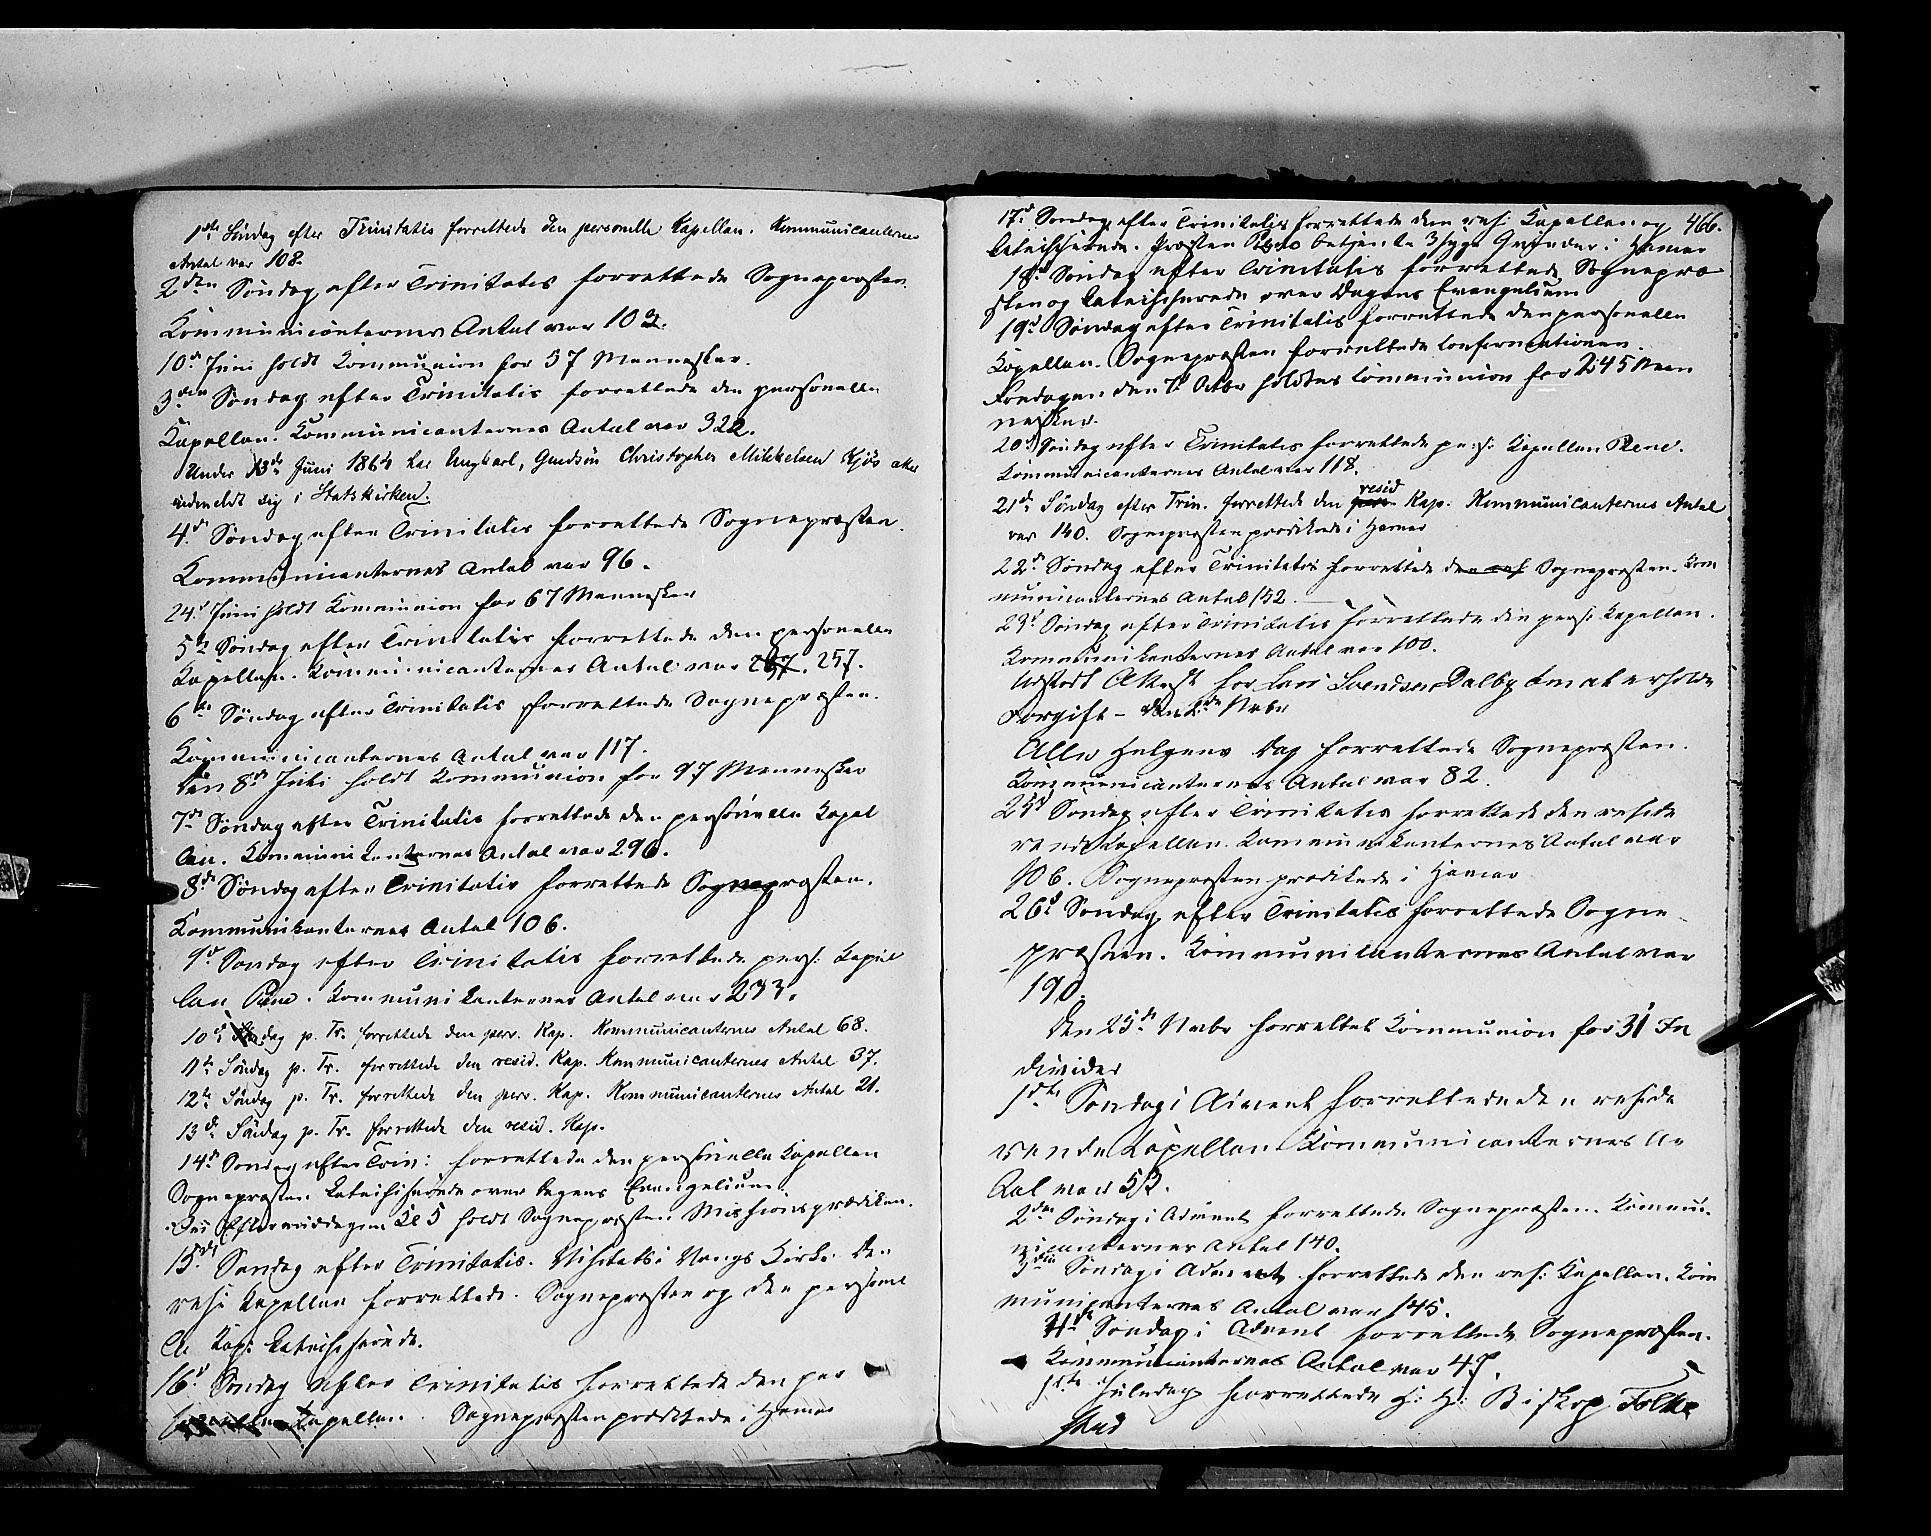 1ste Søndag efter Trinitatis forrettede den personelle Capellan. Kommunicanternes
Antal var 108.
2den Søndag efter Trinitatis forrettede Sognepræsten.
Kommunicanternes Antal var 103.
10d Juni holdt Kommunion for 37 Mennesker.
3die Søndag efter Trinitatis forrettede den personelle
Kapellan. Kommunicanternes Antal var 322.
Under 13de Juni 1864 har Ungkarl, Christopher Mikkelsen
indmeldt sig i Statskirken.
4d Søndag efter Trinitatis forrettede Sognepræsten.
Kommunicanternes Antal var 96.
24d Juni holdt Kommunion for 67 Mennesker
5te Søndag efter Trinitatis forrettede den personelle
Kapellan. Kommunicanternes Antal var 257.
6te Søndag efter Trinitatis forrettede Sognepræsten.
Kommunicanternes Antal var 117.
den 8d Juli holdt Kommunion for 97 Mennesker
7de Søndag efter Trinitatis forrettede den personelle Kapel
lan. Kommunikanternes Antal var 296.
8de Søndag efter Trinitatis forrettede Sognepræsten.
Kommunikanternes Antal 106.
9d Søndag efter Trinitatis forrettede pers: Kapel
lan. Kommunikanternes Antal var 233.
10d Søndag p. Tr. forrettede den pers. Kap. Kommunicanternes Antal 68.
11te Søndag p. Tr. forrettede den resid. Kap. Kommunicanternes Antal 37.
12te Søndag p. Tr. forrettede den pers. Kap. Kommunicanternes Antal 21.
13de Søndag p. Tr. forrettede den resid. Kap.
14d Søndag efter Trin: forrettede den personelle Kapellan
Sognepræsten katechiserede over Dagens Evangelium.
Om Eftermiddagen Kl 5 holdt Sognepræsten Missionsprædiken.
15de Søndag efter Trinitatis. Visitats i Vangs Kirke. Den
resi Kapellan forrettede. Sognepræsten og den personel
le Kap: katechiserede.
16d Søndag efter Trinitatis forrettede den per
Kapellan. Sognepræsten prædikede i Hamar
466.
17d Søndag efter Trinitatis forrettede den res: Kapellan og
katechiserede. Præsten betjente 3 syge Qvinder i Hamar
18d Søndag efter Trinitatis forrettede Sognepræ
sten og kateichiserede over Dagens Evangelium
19d Søndag efter Trinitatis forrettede den personelle
Kapellan. Sognepræsten forrettede Confirmationen.
Fredagen den 7d Octbr holdtes Communion for 245 Men
nesker.
20d Søndag efter Trinitatis forrettede pers: Kapellan
Kommunicanternes Antal var 118.
21de Søndag efter Trin. forrettede den resid Kap. Kommunicanternes Antal
var 140. Sognepræsten prædikede i Hamar
22d Søndag efter Trinitatis forrettede den res Sognepræsten. Kom
municanternes Antal 152
23d Søndag efter Trinitatis forrettede den pers: Kapellan.
Kommunikanternes Antal var 100.
Udstedt Attest for Lars Svendsen Dalby om at erholde
Forgift - den 2den Novbr
Alle Helgens Dag forrettede Sognepræsten.
Kommunicanternes Antal var 82.
25d Søndag efter Trinitatis forrettede den reside
rende Kapellan. Kommunikanternes Antal var
106. Sognepræsten prædikede i Hamar
26d Søndag efter Trinitatis forrettede Sogne
præsten. Kommunicanternes Antal var
190.
Den 25de Novbr forrettet Kommunion for 31 In
divider
1ste Søndag i Advent forrettede den reside
rende Kapellan Kommunicanternes An
tal var 53.
2den Søndag i Advent forrettede Sognepræsten. Kommu
nicanternes Antal 140.
3die Søndag i Advent forrettede den res: Kapellan. Kom
municanternes Antal var 145.
4de Søndag i Advent forrettede Sognepræsten.
Kommunicanternes Antal var 47.
1ste Juledag forrettede H: H: Biskop Folke
stad